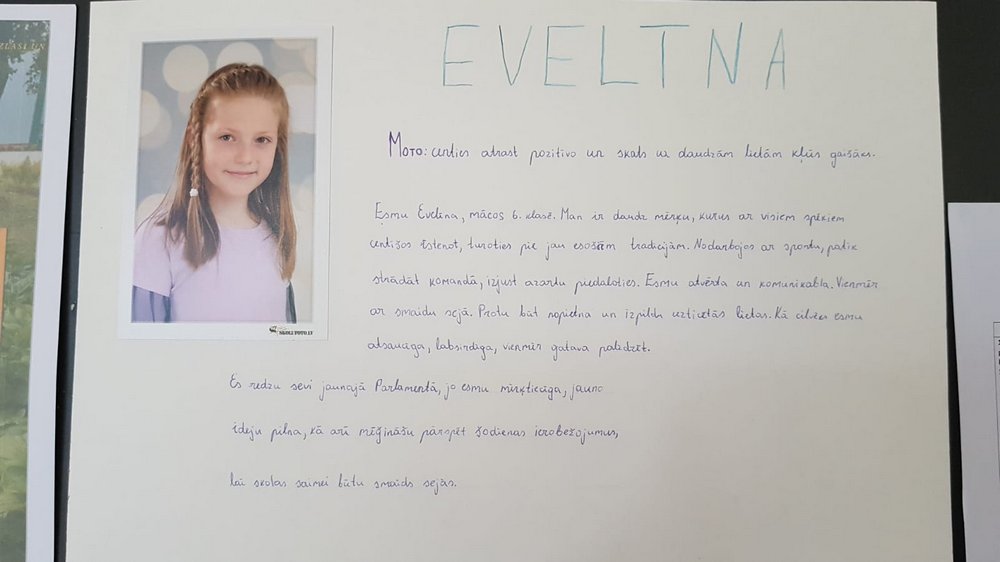 ZLASI UN
EVELINA
MOTO: centies atrast pozitīvo un skats uz daudzām lietām kļūs gaišāks.
Esmu Evelīna, mācos 6. klasē. Man ir daudz mērķu, kurus ar visiem spēkiem
centīšos īstenot, turoties pie jau esošām tradīcijām. Nodarbojos ar sportu, patīk
strādāt komandā, izjust azartu piedaloties. Esmu atvērta un komunikabla. Vienmēr
ar smaidu sejā. Protu būt nopietna un izpildīt uzticētās lietas. Kā cilvēks esmu
atsaucīga, labsirdīga, vienmēr gatava palīdzēt.
Es redzu sevi jaunajā Parlamentā, jo esmu mērķtiecīga, jaunu
ideju pilna, kā arī mēģināšu pārspēt šodienas ierobežojumus,
lai skolas saimei būtu smaids sejās.
SKOLUFOTO.LV